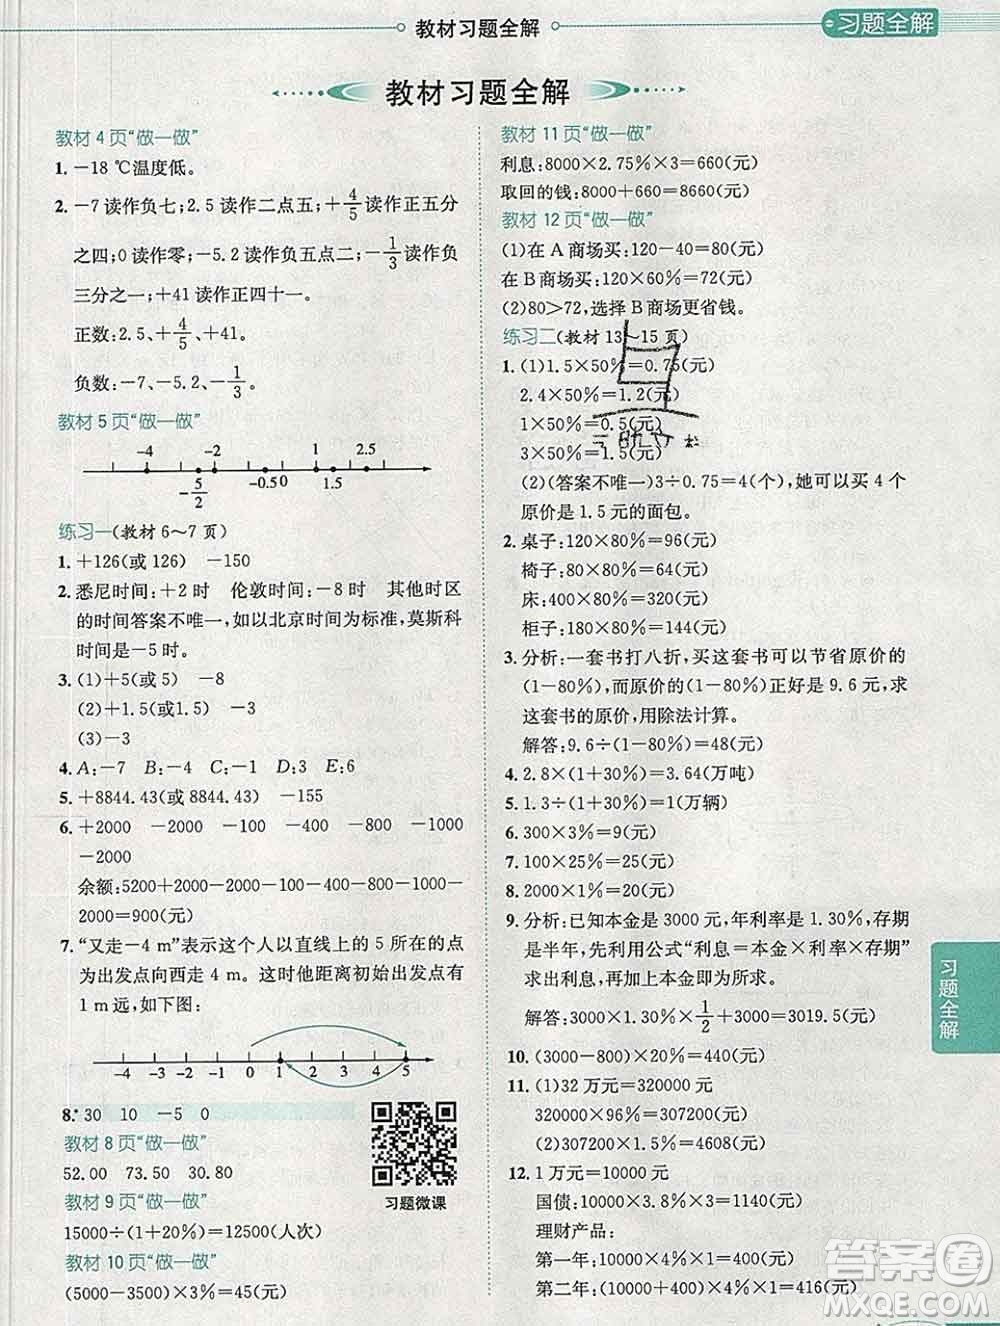 教材习题全解
习题全解
教材习题全解
教材 4 页“做一做”
1. －18 ℃温度低。
2. －7 读作负七；2.5 读作二点五；＋4/5 读作正五分
之四；0 读作零；－5.2 读作负五点二；－1/3 读作负
三分之一；＋41 读作正四十一。
正数：2.5、＋4/5、＋41。
负数：－7、－5.2、－1/3。
教材 5 页“做一做”
－4 －2 1 2.5
－5/2 －0.5 0 1.5
练习一(教材 6～7 页)
1. ＋126(或 126) －150
2. 悉尼时间：＋2 时 伦敦时间：－8 时 其他时区
的时间答案不唯一，如以北京时间为标准，莫斯科
时间是－5 时。
3. (1)＋5(或 5) －8
(2)＋1.5(或1.5) －3
(3)－3
4. A：－7 B：－4 C：－1 D：3 E：6
5. ＋8844.43(或 8844.43) －155
6. ＋2000 －2000 －100 －400 －800 －1000
－2000
余额：5200＋2000－2000－100－400－800－1000－
2000＝900(元)
7. “又走－4 m”表示这个人以直线上的 5 所在的点
为出发点向西走 4 m。这时他距离初始出发点有
1 m 远，如下图：
－4 －3 －2 －1 0 1 2 3 4 5
8.* 30 10 －5 0
教材 8 页“做一做”
52.00 73.50 30.80
习题微课
教材 9 页“做一做”
15000÷(1＋20%)＝12500(人次)
教材 10 页“做一做”
(5000－3500)×3%＝45(元)
教材 11 页“做一做”
利息：8000×2.75%×3＝660(元)
取回的钱：8000＋660＝8660(元)
教材 12 页“做一做”
(1)在 A 商场买：120－40＝80(元)
在 B 商场买：120×60%＝72(元)
(2)80＞72，选择 B 商场更省钱。
练习二(教材 13～15 页)
1. (1)1.5×50%＝0.75(元)
2.4×50%＝1.2(元)
1×50%＝0.5(元)
3×50%＝1.5(元)
(2)(答案不唯一)3÷0.75＝4(个)，她可以买 4 个
原价是 1.5 元的面包。
2. 桌子：120×80%＝96(元)
椅子：80×80%＝64(元)
床：400×80%＝320(元)
柜子：180×80%＝144(元)
3. 分析：一套书打八折，买这套书可以节省原价的
(1－80%)，而原价的(1－80%)正好是 9.6 元，求
这套书的原价，用除法计算。
解答：9.6÷(1－80%)＝48(元)
4. 2.8×(1＋30%)＝3.64(万吨)
5. 1.3÷(1＋30%)＝1(万辆)
6. 300×3%＝9(元)
7. 100×25%＝25(元)
8. 2000×1%＝20(元)
9. 分析：已知本金是 3000 元，年利率是 1.30%，存期
是半年，先利用公式“利息＝本金×利率×存期”
求出利息，再加上本金即为所求。
解答：3000×1.30%×1/2＋3000＝3019.5(元)
10. (3000－800)×20%＝440(元)
11. (1)32 万元＝320000元
320000×96%＝307200(元)
(2)307200×1.5%＝4608(元)
12. 1 万元＝10000 元
国债：10000×3.8%×3＝1140(元)
理财产品：
第一年：10000×4%×1＝400(元)
第二年：(10000＋400)×4%×1＝416(元)
习题全解
答案圈
MXQE.COM